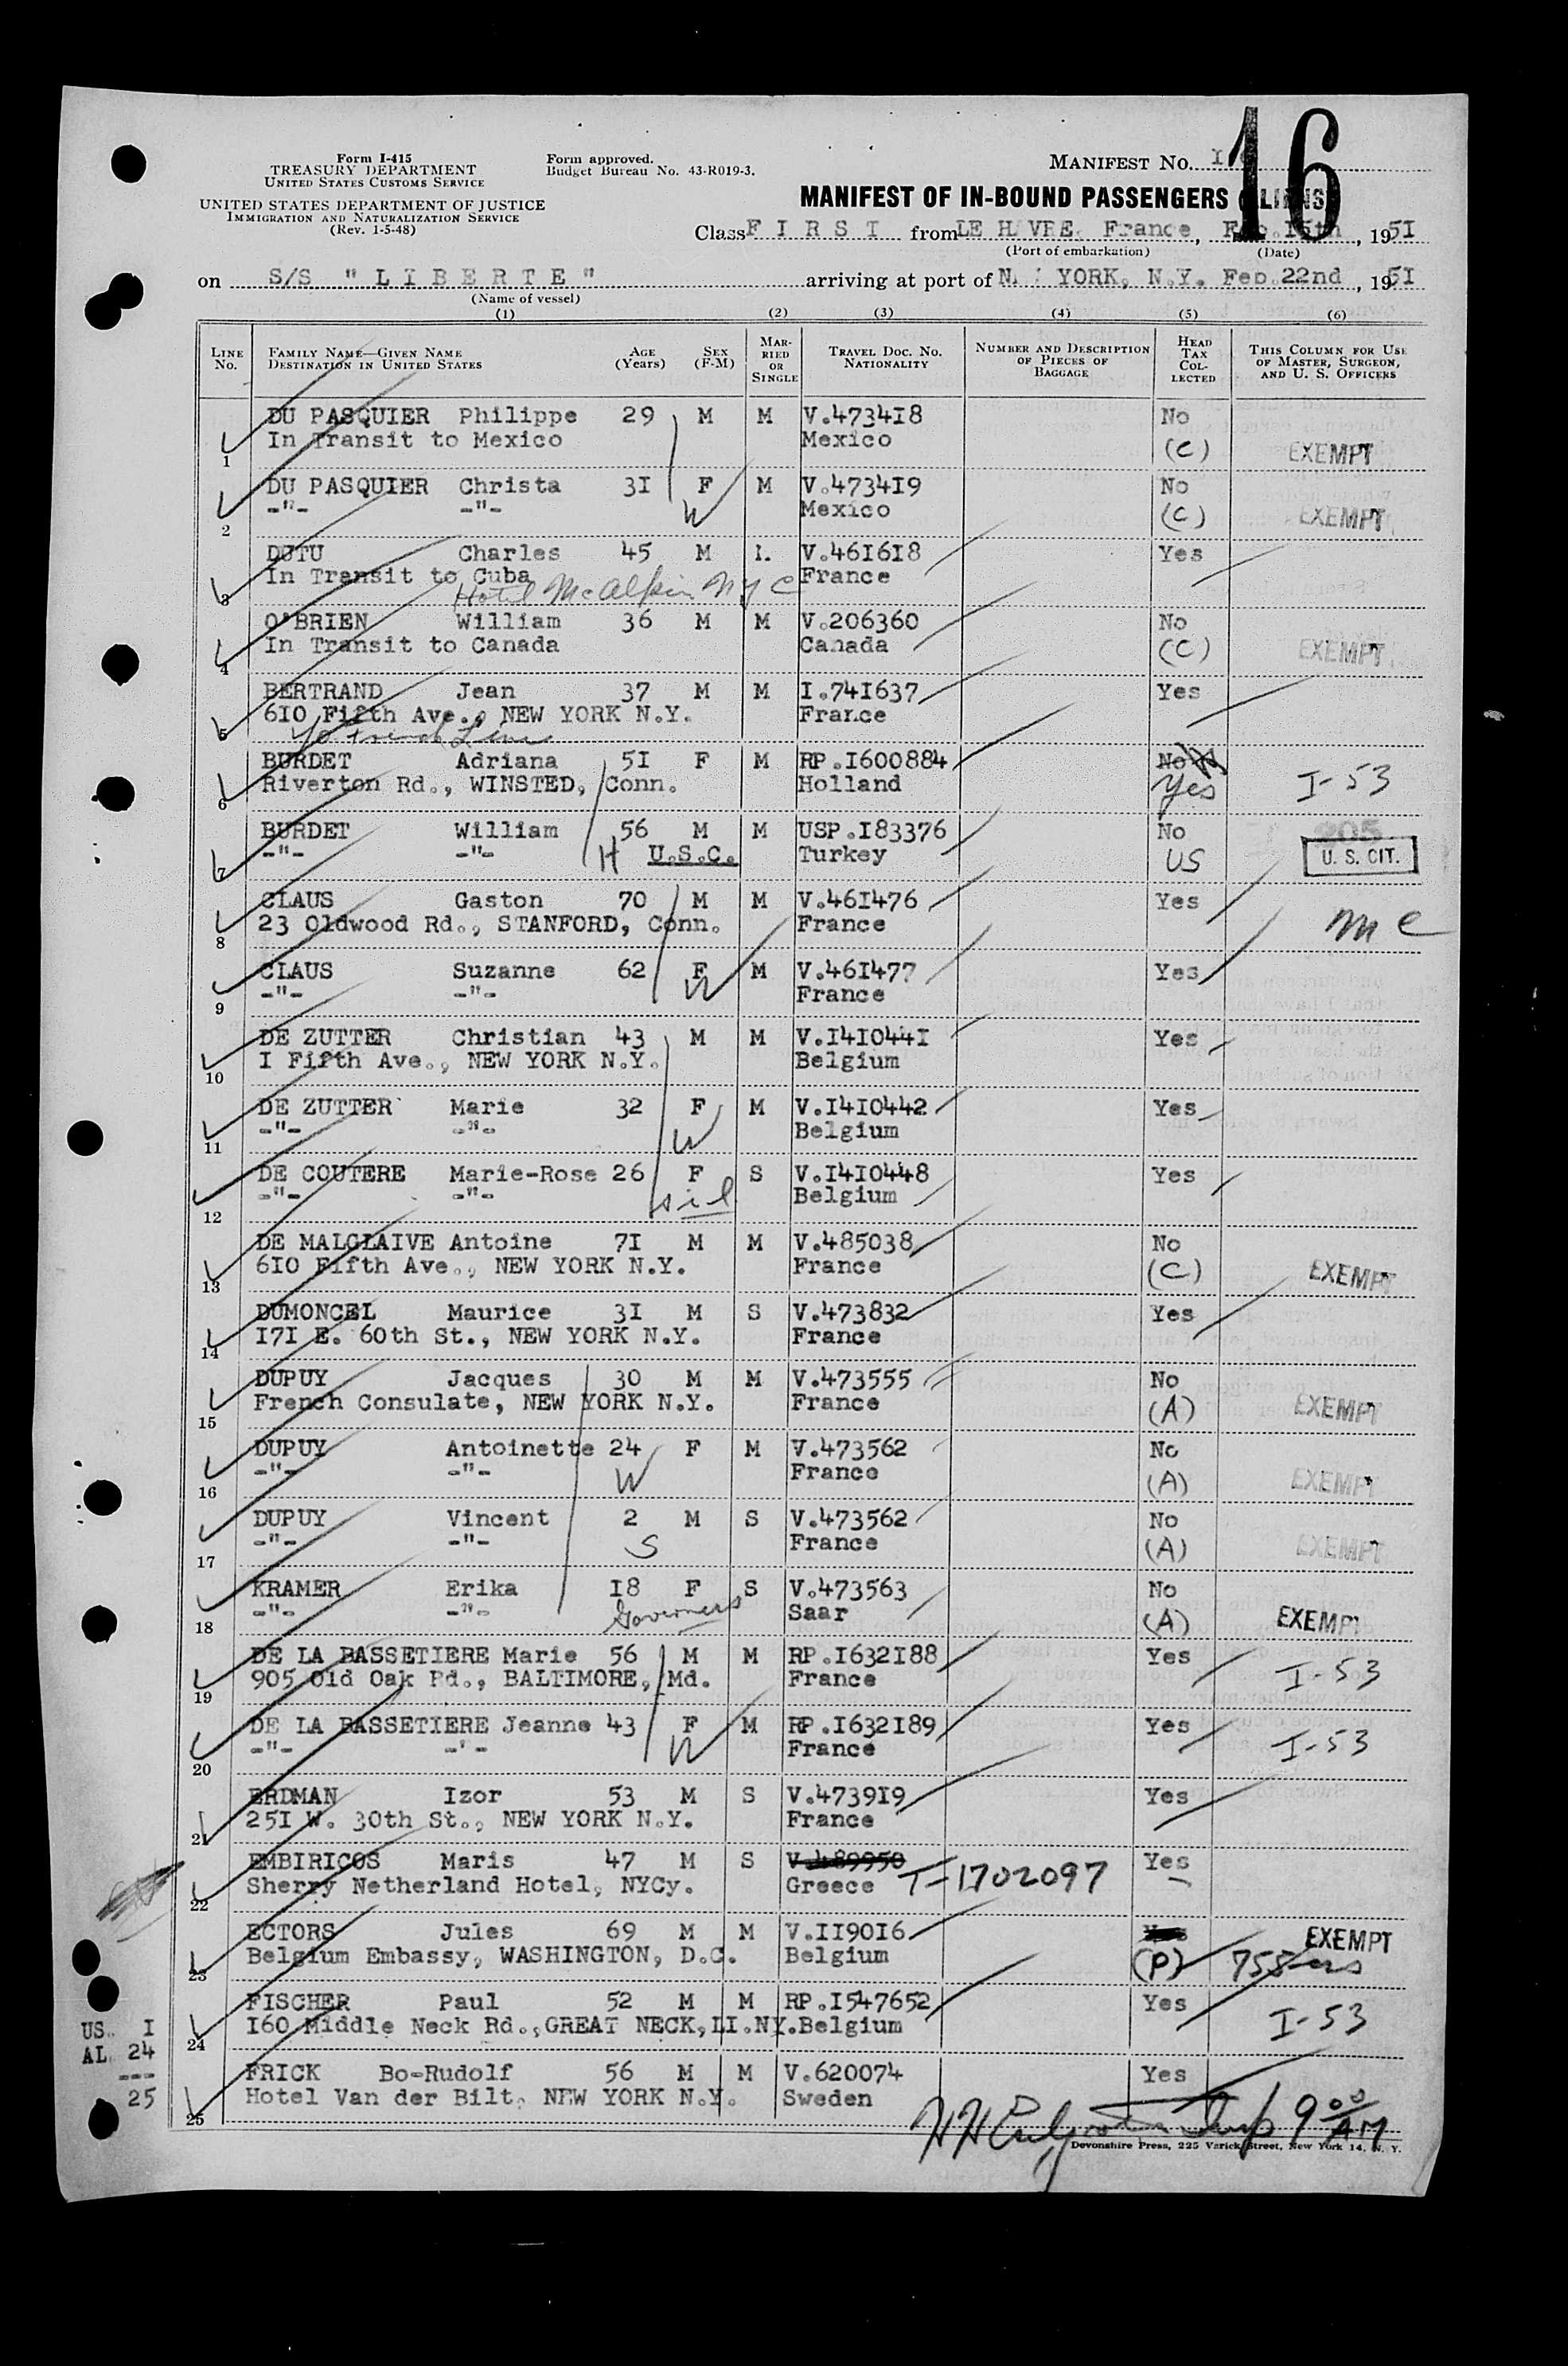 16
Form I-415
TREASURY DEPARTMENT
UNITED STATES CUSTOMS SERVICE
UNITED STATES DEPARTMENT OF JUSTICE
IMMIGRATION AND NATURALIZATION SERVICE
(Rev. 1-5-48)
Form approved.
Budget Bureau No. 43-R019-3.
MANIFEST NO.
MANIFEST OF IN-BOUND PASSENGERS
Class F I R S T from LE HAVRE, France, Feb.15th, 1951
(Port of embarkation) (Date)
on S/S "LIBERTE" arriving at port of NEW YORK, N.Y. Feb.22nd, 1951
(Name of vessel)
(1) (2) (3) (4) (5) (6)
LINE NO. FAMILY NAME—GIVEN NAME DESTINATION IN UNITED STATES AGE (Years) SEX (F-M) MARRIED OR SINGLE TRAVEL DOC. NO. NATIONALITY NUMBER AND DESCRIPTION OF PIECES OF BAGGAGE HEAD TAX COLLECTED THIS COLUMN FOR USE OF MASTER, SURGEON, AND U. S. OFFICERS
DU PASQUIER Philippe 29 M M V.473418 No
1 In Transit to Mexico Mexico (C) EXEMPT
DU PASQUIER Christa 31 F M V.473419 No
2 -"- -"- W Mexico (C) EXEMPT
DUTU Charles 45 M V.461618 Yes
3 In Transit to Cuba France
Hotel McAlpin NYC
O'BRIEN William 36 M M V.206360 No
4 In Transit to Canada Canada (C) EXEMPT
BERTRAND Jean 37 M M I.741637 Yes
5 610 Fifth Ave., NEW YORK N.Y. France
c/o French Line
BURDET Adriana 51 F M RP.1600884 No
6 Riverton Rd., WINSTED, Conn. Holland Yes I-53
BURDET William 56 M M USP.183376 No 205
7 -"- -"- H U.S.C. Turkey US U. S. CIT.
CLAUS Gaston 70 M M V.461476 Yes
8 23 Oldwood Rd., STANFORD, Conn. France mc
CLAUS Suzanne 62 F M V.461477 Yes
9 -"- -"- W France
DE ZUTTER Christian 43 M M V.1410441 Yes
10 1 Fifth Ave., NEW YORK N.Y. Belgium
DE ZUTTER Marie 32 F M V.1410442 Yes
11 -"- -"- W Belgium
DE COUTERE Marie-Rose 26 F S V.1410448 Yes
12 -"- -"- sil Belgium
DE MALGLAIVE Antoine 71 M M V.485038 No
13 610 Fifth Ave., NEW YORK N.Y. France (C) EXEMPT
DUMONCEL Maurice 31 M S V.473832 Yes
14 171 E. 60th St., NEW YORK N.Y. France
DUPUY Jacques 30 M M V.473555 No
15 French Consulate, NEW YORK N.Y. France (A) EXEMPT
DUPUY Antoinette 24 F M V.473562 No
16 -"- -"- W France (A) EXEMPT
DUPUY Vincent 2 M S V.473562 No
17 -"- -"- S France (A) EXEMPT
KRAMER Erika 18 F S V.473563 No
18 -"- -"- Governess Saar (A) EXEMPT
DE LA BASSETIERE Marie 56 M M RP.1632188 Yes
19 905 Old Oak Rd., BALTIMORE, Md. France I-53
DE LA BASSETIERE Jeanne 43 F M RP.1632189 Yes
20 -"- -"- W France I-53
ERDMAN Izor 53 M S V.473919 Yes
21 251 W. 30th St., NEW YORK N.Y. France
EMBIRICOS Maris 47 M S V.489950 Yes
22 Sherry Netherland Hotel, NYCy. Greece T-1702097
ECTORS Jules 69 M M V.119016 Yes EXEMPT
23 Belgium Embassy, WASHINGTON, D.C. Belgium (P)
FISCHER Paul 52 M M RP.1547652 Yes
24 160 Middle Neck Rd., GREAT NECK, LI.NY. Belgium I-53
FRICK Bo-Rudolf 56 M M V.620074 Yes
25 Hotel Van der Bilt, NEW YORK N.Y. Sweden
US. 1
AL. 24
---
25
9 00 AM
Devonshire Press, 225 Varick Street, New York 14, N. Y.